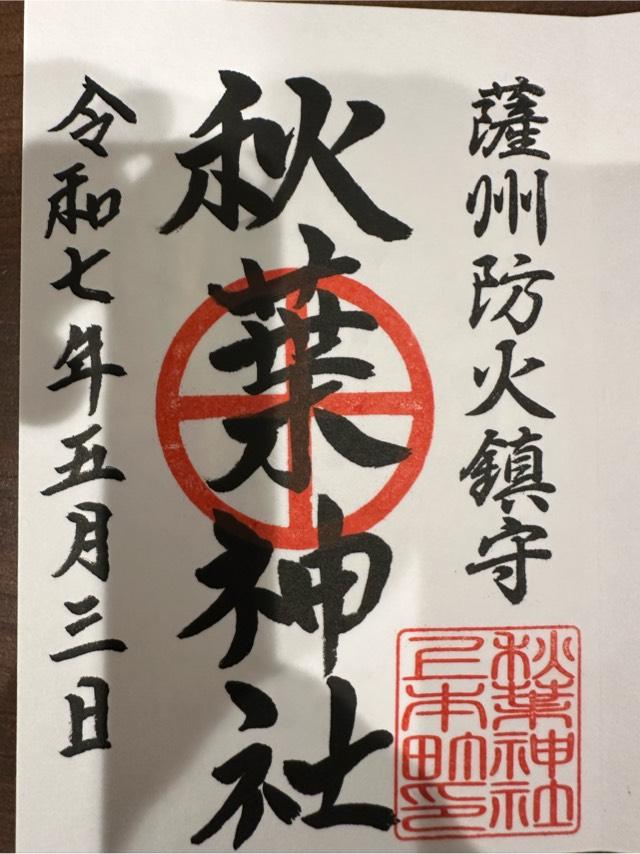 薩州防火鎮守
秋葉神社
令和七年五月三日
秋葉神社
上本町印